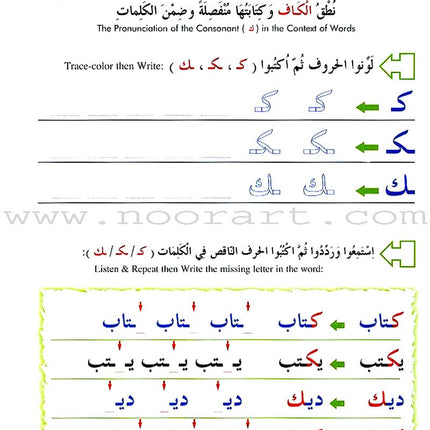 نُطْقُ الْكَاف وَكِتَابَتُهَا مُنْفَصِلَةً وَضِمْنَ الْكَلِمَاتِ
The Pronunciation of the Consonant ( ك ) in the Context of Words
لَوِّنوا الحروف ثُمَّ اُكتُبوا ( كـ ، ـكـ ، ـك ) Trace-color then Write:
كـ كـ كـ
ـكـ ـكـ ـكـ
ـك ـك ـك
www.noorart.com
اِسْتَمِعُوا وَرَدِّدُوا ثُمَّ اكْتُبُوا الحرف النّاقص فِي الْكَلِمَات ( كـ / ـكـ / ـك ) :
Listen & Repeat then Write the missing letter in the word:
كتاب كتاب _تاب _تاب _تاب
يكتب يكتب يـ_ـتب يـ_ـتب يـ_ـتب
ديك ديك ديـ_ ديـ_ ديـ_